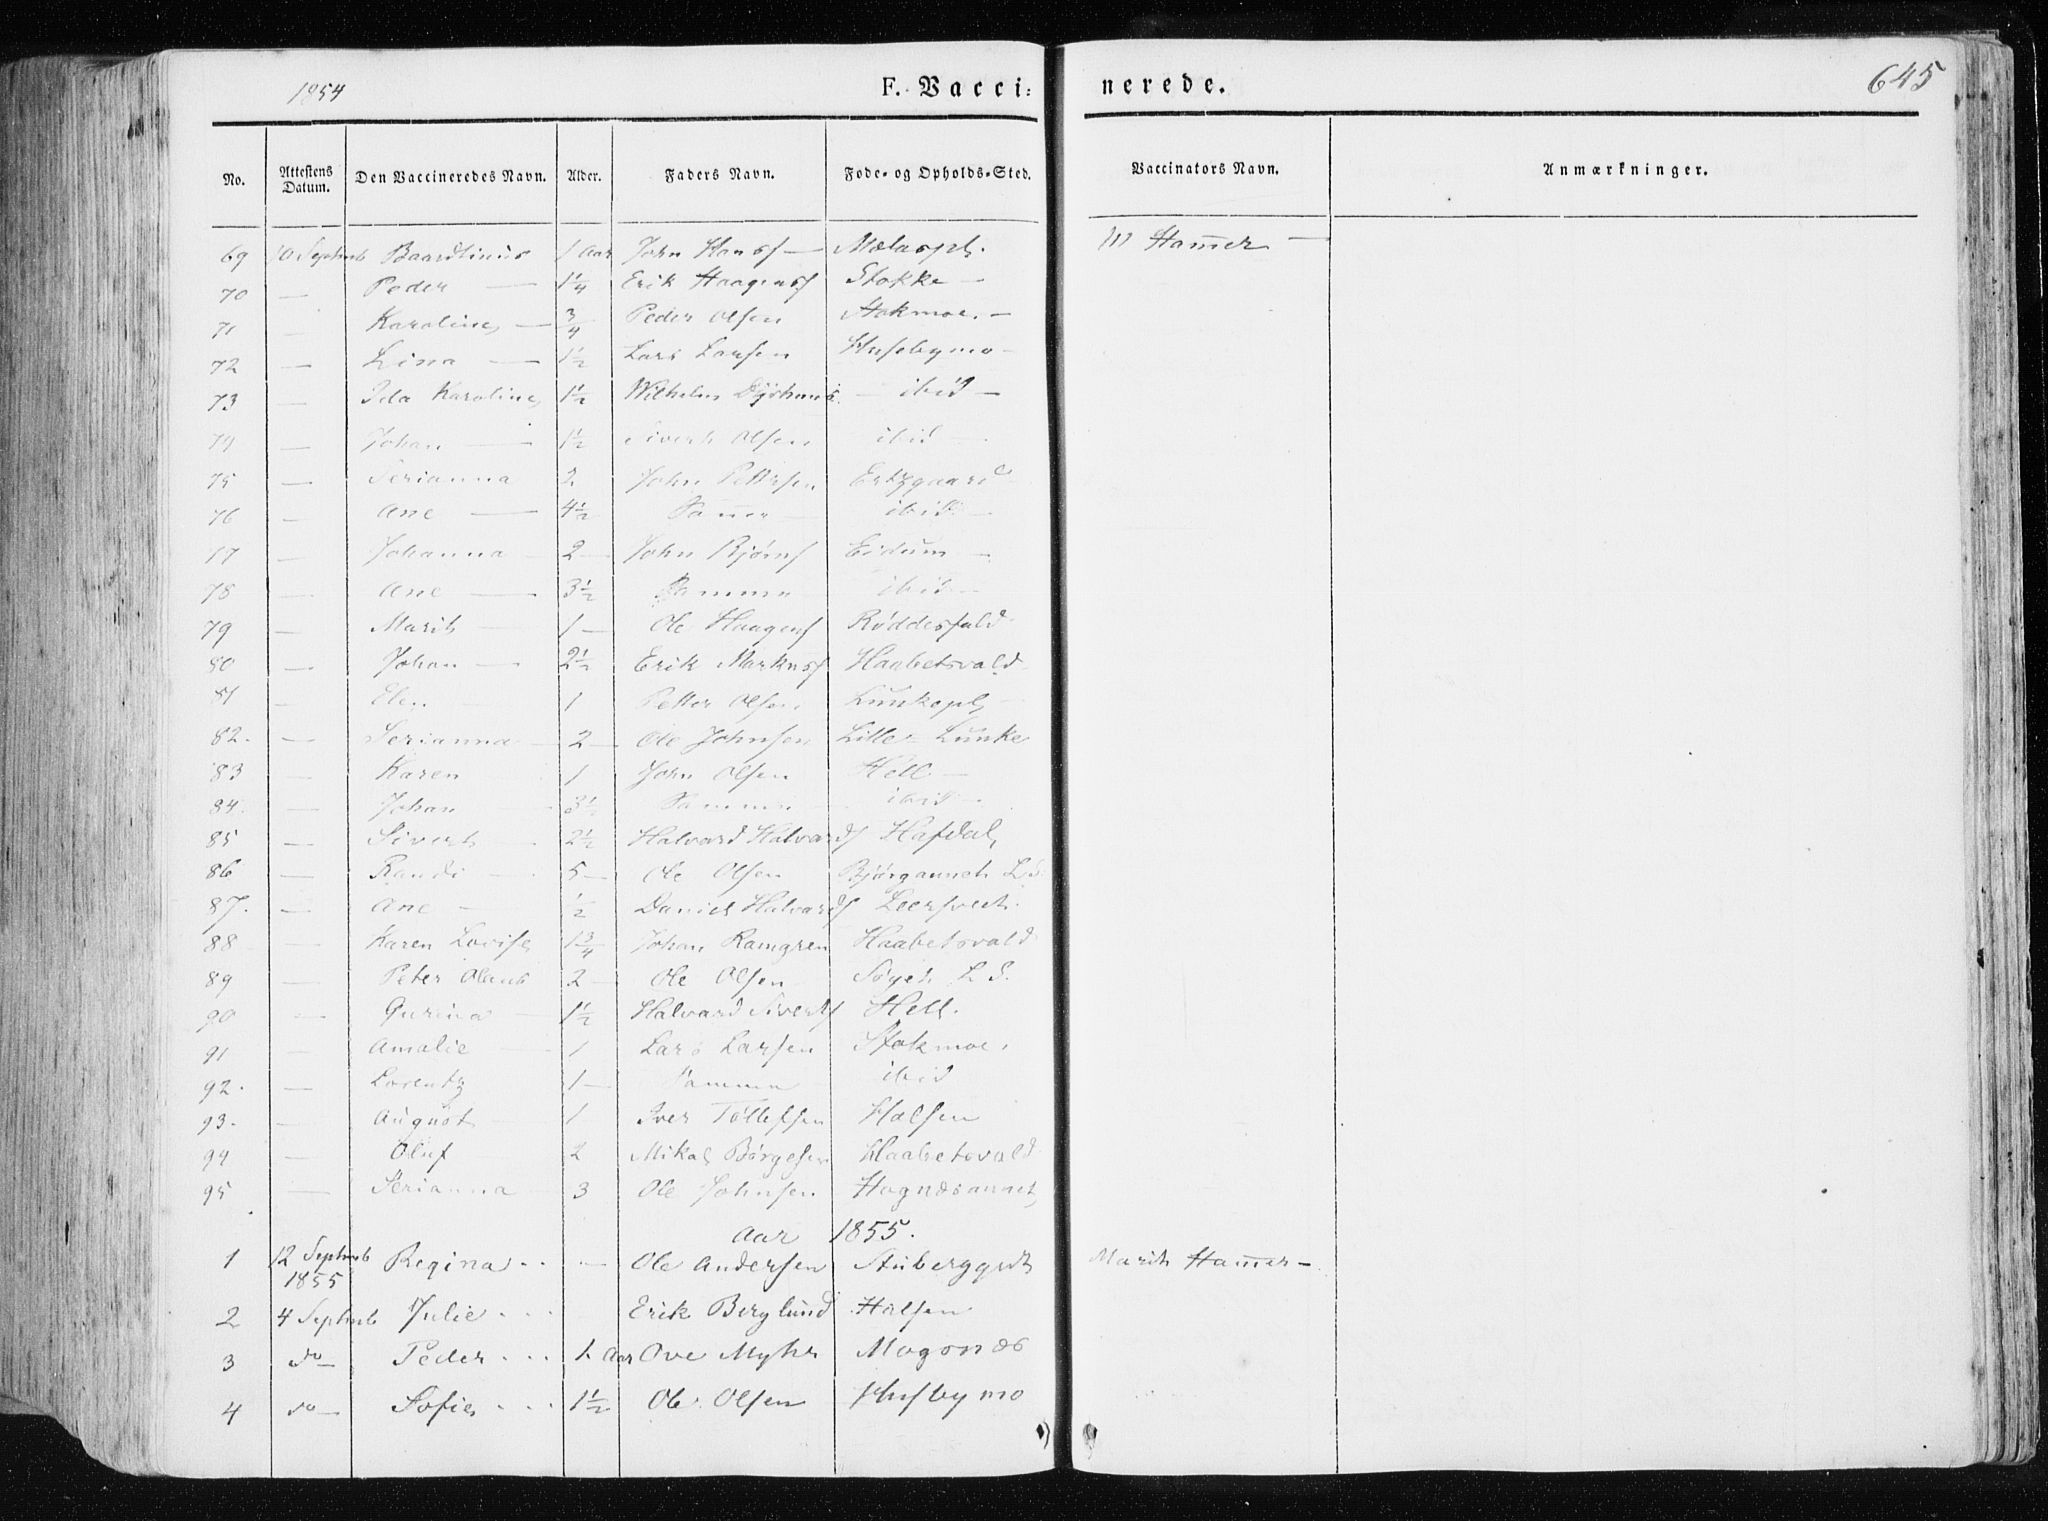 1854 F. Vacci: nerede. 645
No. Attestens Datum. Den Vaccineredes Navn. Alder. Faders Navn. Føde- og Opholds-Sted. Vaccinators Navn. Anmærkninger.
69 10 Septmb Baardlinius 1 Aar John Hansf — M Hamer —
70 — Peder — 1¼ Erik Haagensf Stokke —
71 — Karoline — ¾ Peder Olsen Stokmoe. —
72 — Lina — 1½ Lars Larsen Husebymo —
73 — Ida Karoline 1½ Wilhelm — ibid —
74 — Johan — 1½ Sivert Olsen ibid —
75 — Serianna 2 John Pettersen
76 — Ane — 4½ Samme — ibid —
77 — Johanna — 2 — John Bjørnsf Eidum —
78 — Ane — 3½ Samme — ibid —
79 — Marit — 1 — Ole Haagensf Røddesfald
80 — Johan — 2½ Erik Markusf Haabetsvald
81 — Elen — 1 Petter Olsen Lunkepl —
82. — Serianna — 2 — Ole Johnsen Lille Lunke
83 — Karen 1 John Olsen Hell —
84. — Johan 3½ Samme — ibid —
85 — Sivert — 2½ Halvard Halvardsf Hafdal
86 — Randi — 5 — Ole Olsen
87. — Ane — ½ Daniel Halvardsf
88 — Karen Lovise 1¾ Johan Ramgren Haabetsvald
89 — Peter Olaus 2 — Ole Olsen L S.
90 — Gurina — 1½ Halvard Sivertsf Hell.
91 — Amalie — 1 Lars Larsen Stokmoe.
92. — Lorentz 1 — Samme ibid
93. — August — 1 Iver Tollefsen Halsen
94 — Oluf — 2 Mikal Børgesen Haabetsvald
95 — Serianna — 3 Ole Johnsen
Aar 1855.
1 12 Septmb 1855 Regina . . — Ole Andersen Marit Hamer —
2 4 Septmb Julie . . . Erik Berglund Halsen
3 do — Peder . . . 1. Aar Ove Myhr
4 do — Sofie . . . 1½ Ole Olsen Husbymo